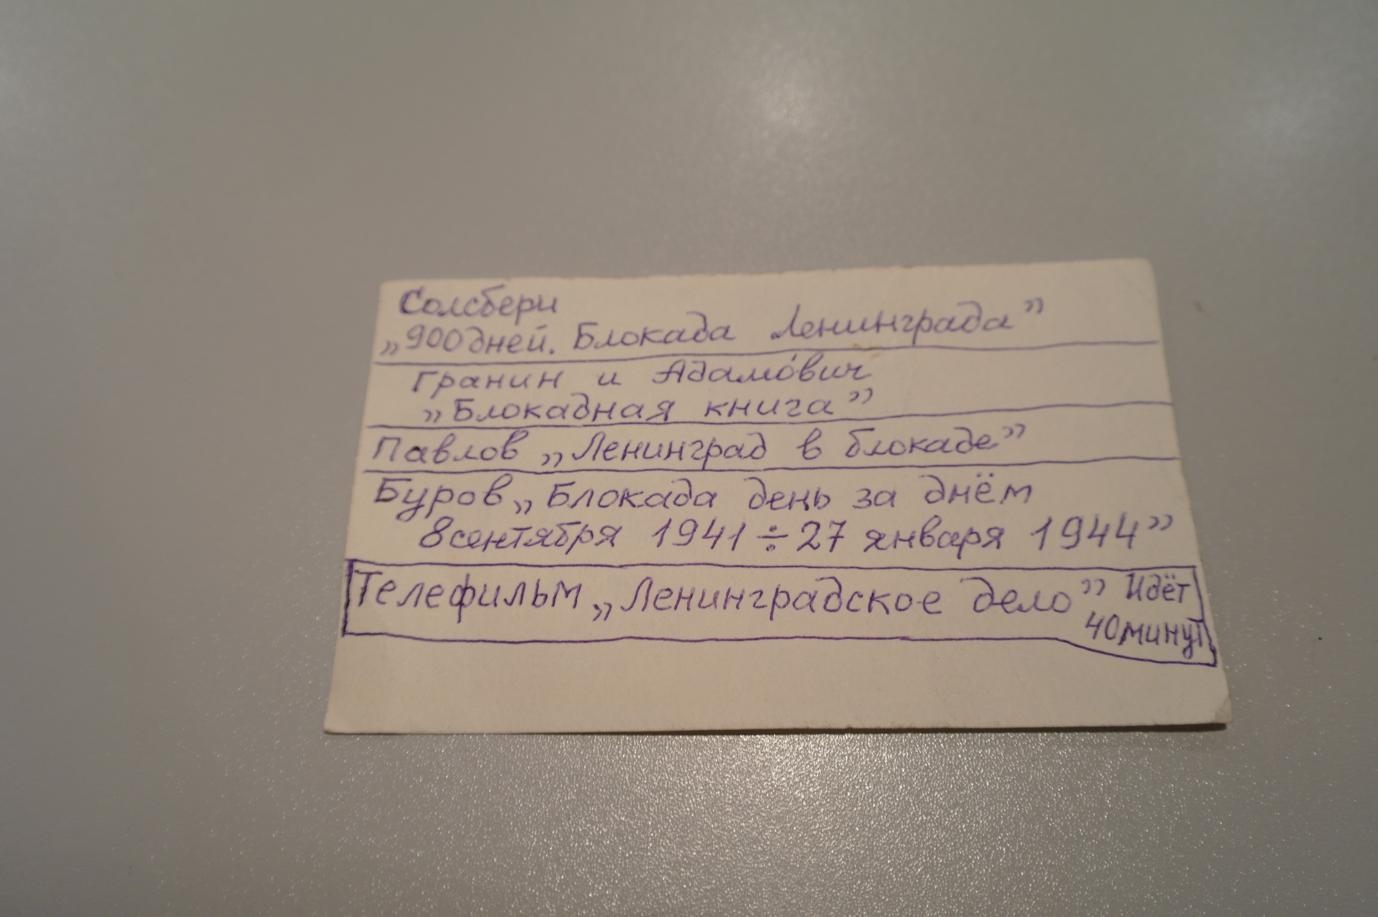 Солсбери
„900 дней. Блокада Ленинграда”
Гранин и Адамо́вич
„Блокадная книга”
Павлов „Ленинград в блокаде”
Буров „Блокада день за днём
8 сентября 1941 ÷ 27 января 1944”
Телефильм „Ленинградское дело” Идёт
40 минут